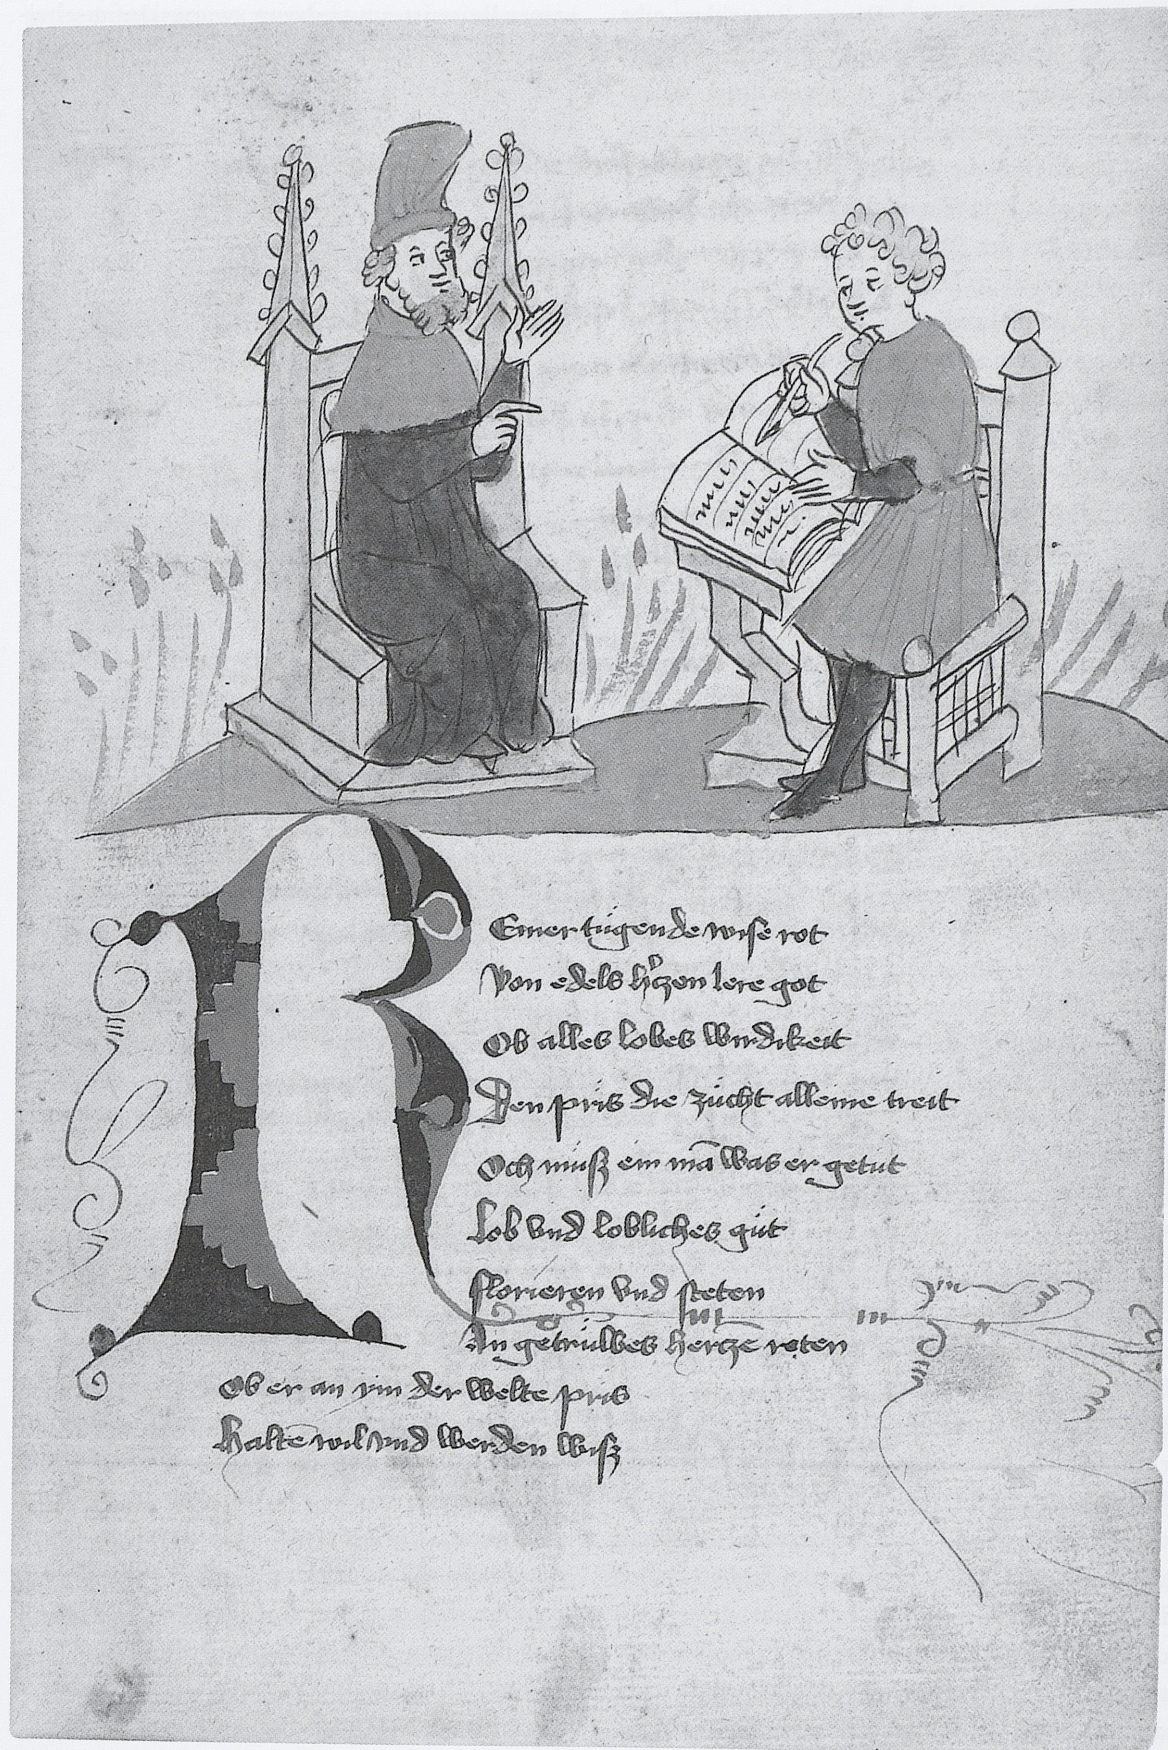 R
Einer tugende wise rot
Von edels h'rzen lere got
Ob alles lobes wirdikeit
Den pris die zücht alleine treit
Och müß ein mā was er getüt
Lob vnd lobliches güt
florieren vnd steten
An getrüwes hertzē reten
Ob er an ym der welte pris
Haltē wil vnd werden wiß